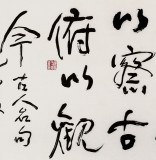 以察古
俯以觀
今古人名句